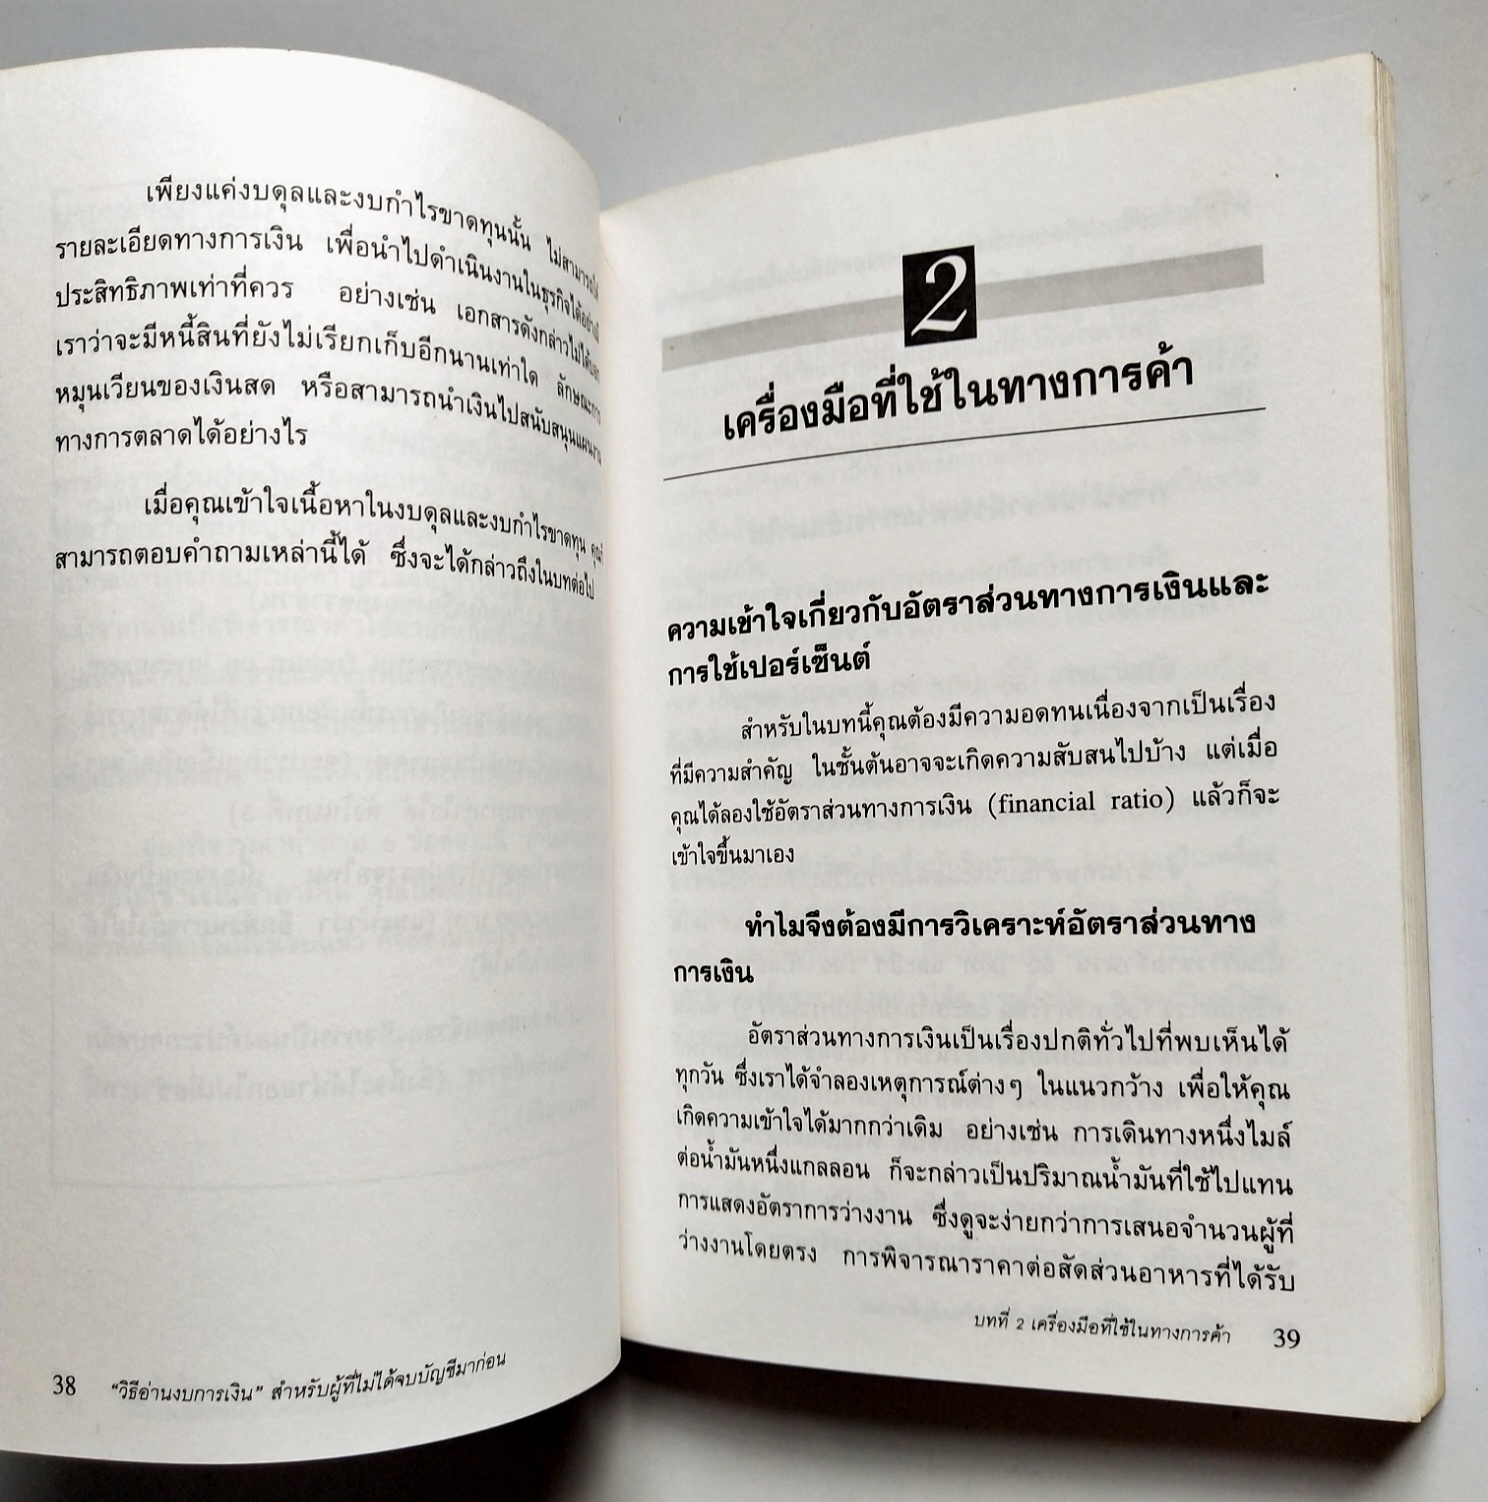 เพียงแค่งบดุลและงบกำไรขาดทุนนั้น ไม่สามารถให้
รายละเอียดทางการเงิน เพื่อนำไปดำเนินงานในธุรกิจได้อย่างมี
ประสิทธิภาพเท่าที่ควร อย่างเช่น เอกสารดังกล่าวไม่ได้บอก
เราว่าจะมีหนี้สินที่ยังไม่เรียกเก็บอีกนานเท่าใด ลักษณะการ
หมุนเวียนของเงินสด หรือสามารถนำเงินไปสนับสนุนแผนงาน
ทางการตลาดได้อย่างไร
เมื่อคุณเข้าใจเนื้อหาในงบดุลและงบกำไรขาดทุน คุณก็
สามารถตอบคำถามเหล่านี้ได้ ซึ่งจะได้กล่าวถึงในบทต่อไป
38 "วิธีอ่านงบการเงิน" สำหรับผู้ที่ไม่ได้จบบัญชีมาก่อน
2
เครื่องมือที่ใช้ในทางการค้า
ความเข้าใจเกี่ยวกับอัตราส่วนทางการเงินและ
การใช้เปอร์เซ็นต์
สำหรับในบทนี้คุณต้องมีความอดทนเนื่องจากเป็นเรื่อง
ที่มีความสำคัญ ในชั้นต้นอาจจะเกิดความสับสนไปบ้าง แต่เมื่อ
คุณได้ลองใช้อัตราส่วนทางการเงิน (financial ratio) แล้วก็จะ
เข้าใจขึ้นมาเอง
ทำไมจึงต้องมีการวิเคราะห์อัตราส่วนทาง
การเงิน
อัตราส่วนทางการเงินเป็นเรื่องปกติทั่วไปที่พบเห็นได้
ทุกวัน ซึ่งเราได้จำลองเหตุการณ์ต่างๆ ในแนวกว้าง เพื่อให้คุณ
เกิดความเข้าใจได้มากกว่าเดิม อย่างเช่น การเดินทางหนึ่งไมล์
ต่อน้ำมันหนึ่งแกลลอน ก็จะกล่าวเป็นปริมาณน้ำมันที่ใช้ไปแทน
การแสดงอัตราการว่างงาน ซึ่งดูจะง่ายกว่าการเสนอจำนวนผู้ที่
ว่างงานโดยตรง การพิจารณาราคาต่อสัดส่วนอาหารที่ได้รับ
บทที่ 2 เครื่องมือที่ใช้ในทางการค้า 39